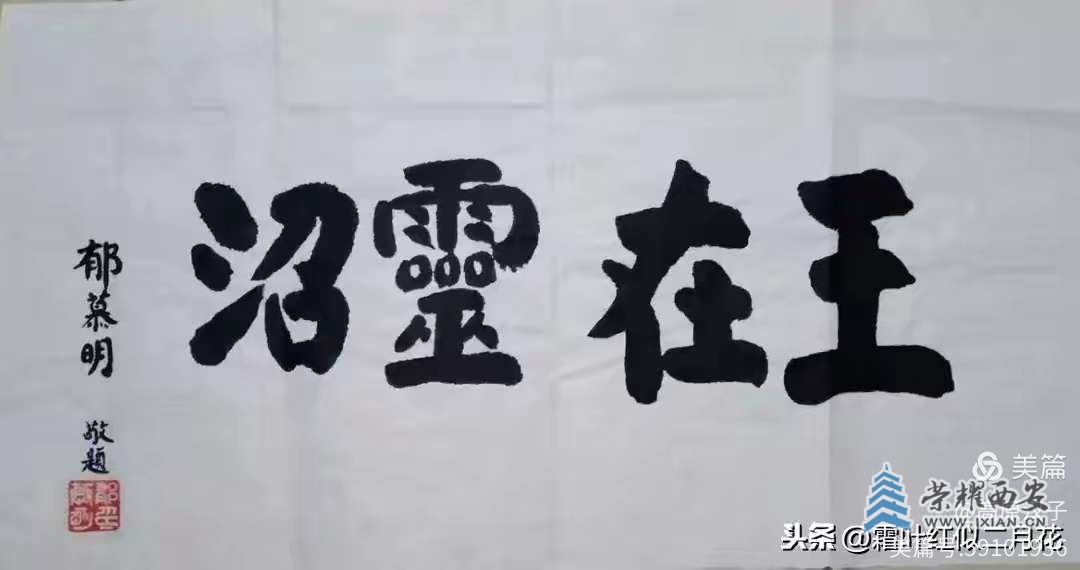 王在靈沼
郁慕明
敬題
美篇
荣耀西安
WWW.IXIAN.CN
头条 @霜叶红似二月花
美篇号:59101936